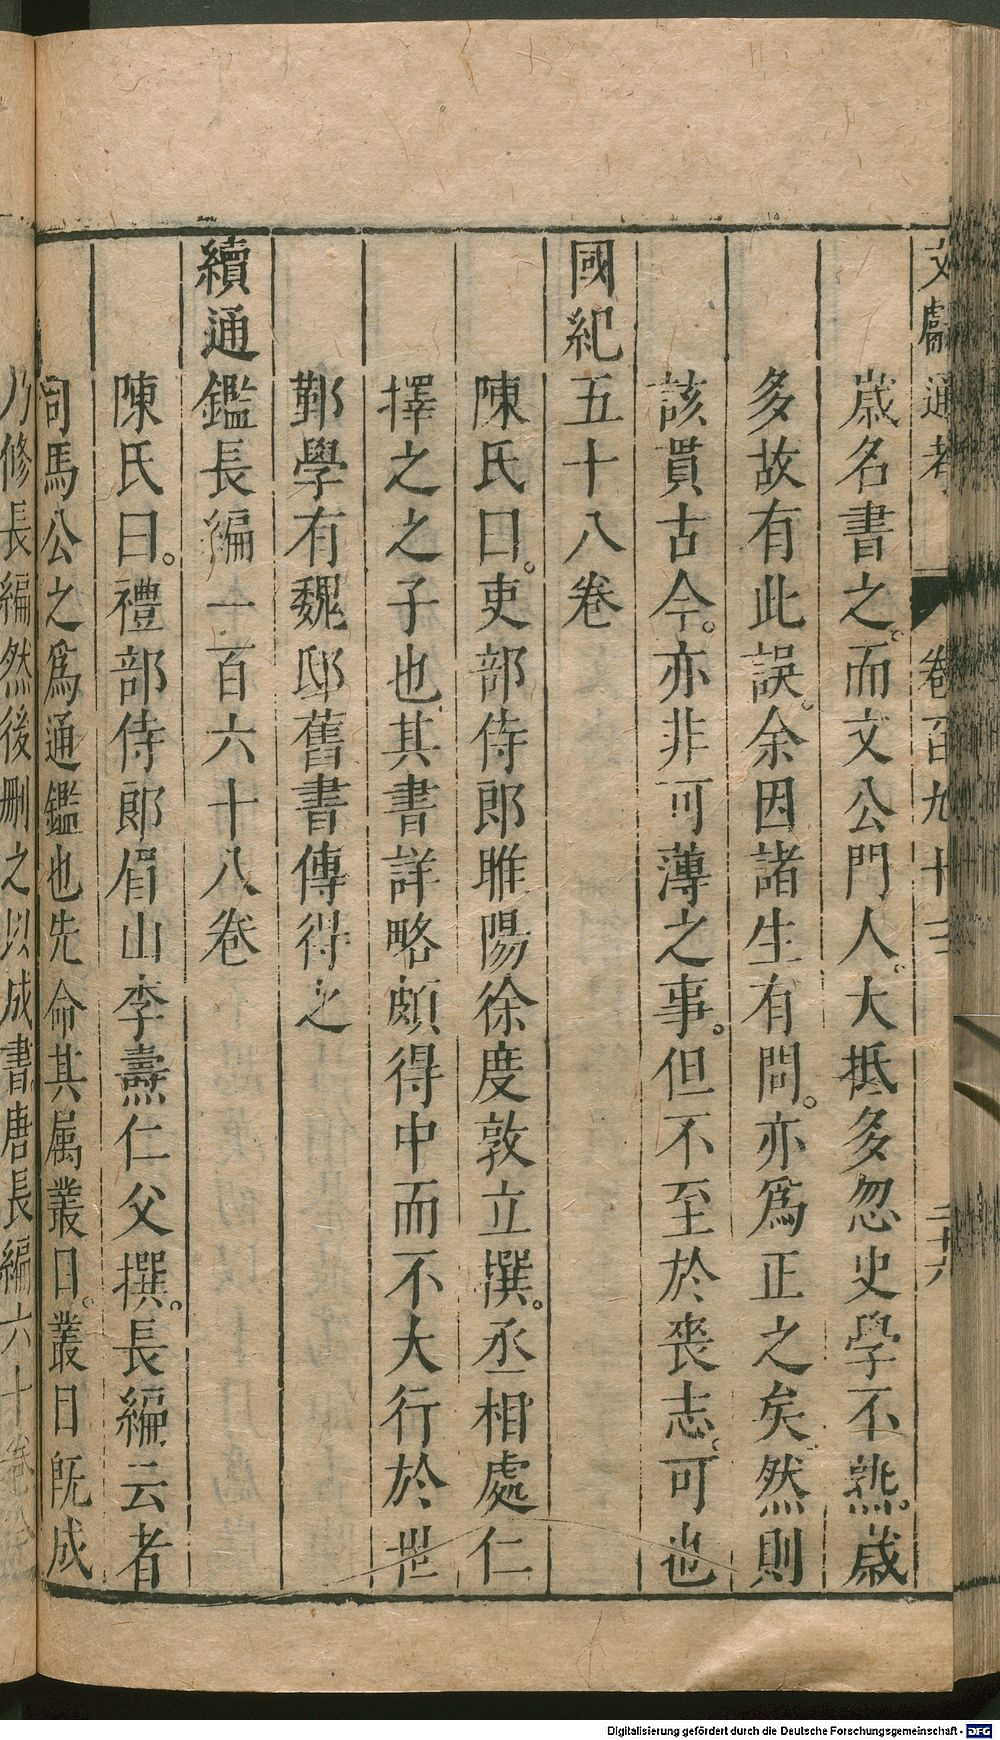 文獻通考 卷百九十三 二十六
歲名書之。而文公門人。大抵多忽史學不熟。歲
多故有此誤。余因諸生有問。亦爲正之矣。然則
該貫古今。亦非可薄之事。但不至於喪志。可也
國紀五十八卷
陳氏曰。吏部侍郎睢陽徐度敦立撰。丞相處仁
擇之之子也其書詳略頗得中而不大行於世
鄞學有魏邸舊書傳得之
續通鑑長編一百六十八卷
陳氏曰。禮部侍郎眉山李燾仁父撰。長編云者
司馬公之爲通鑑也先命其属叢目。叢目既成
乃修長編然後刪之以成書唐長編六十卷
Digitalisierung gefördert durch die Deutsche Forschungsgemeinschaft - DFG